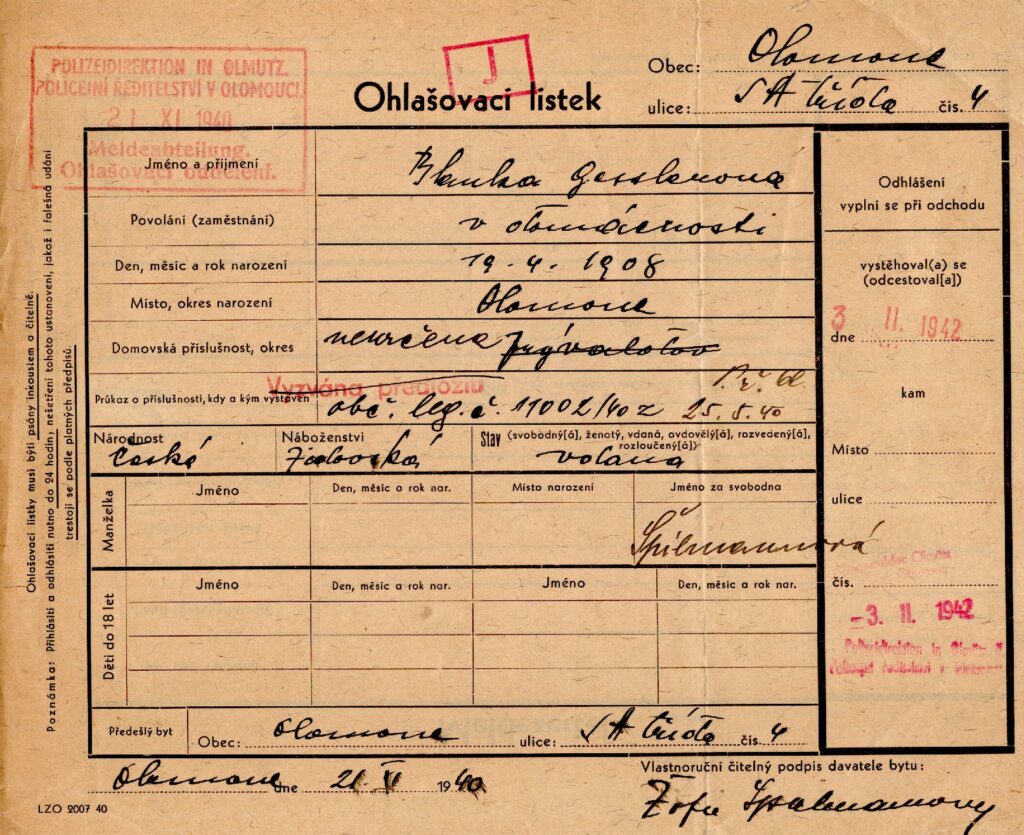 POLIZEIDIREKTION IN OLMÜTZ.
POLICEJNÍ ŘEDITELSTVÍ V OLOMOUCI.
21 XI 1940
Meldeabteilung.
Ohlašovací oddělení.
J
Ohlašovací lístek
Obec: Olomouc
ulice: SA třída čís. 4
Jméno a příjmení Blanka Gesslerová
Povolání (zaměstnání) v domácnosti
Den, měsíc a rok narození 19. 4. 1908
Místo, okres narození Olomouc
Domovská příslušnost, okres neurčena
Vyzvána předložiti
Průkaz o příslušnosti, kdy a kým vystaven obč. leg. č. 11002/40 z 25. 5. 40
Národnost česká
Náboženství židovská
Stav (svobodný[á], ženatý, vdaná, ovdovělý[á], rozvedený[á], rozloučený[á])
vdaná
Manželka
Jméno Den, měsíc a rok nar. Místo narození Jméno za svobodna
Špilmannová
Děti do 18 let
Jméno Den, měsíc a rok nar. Jméno Den, měsíc a rok nar.
Předešlý byt Obec: Olomouc ulice: SA třída čís. 4
Olomouc dne 21. XI 1940
Vlastnoruční čitelný podpis davatele bytu:
Žofie
LZO 2007 40
Odhlášení
vyplní se při odchodu
vystěhoval(a) se
(odcestoval[a])
dne 3 II. 1942
kam
Místo
ulice
čís.
-3. II. 1942
Polizeidirektion in Olmütz
Policejní ředitelství v Olomouci
Ohlašovací lístky musí býti psány inkoustem a čitelně.
Poznámka: Přihlásiti a odhlásiti nutno do 24 hodin, nešetření tohoto ustanovení, jakož i falešná udání
trestají se podle platných předpisů.